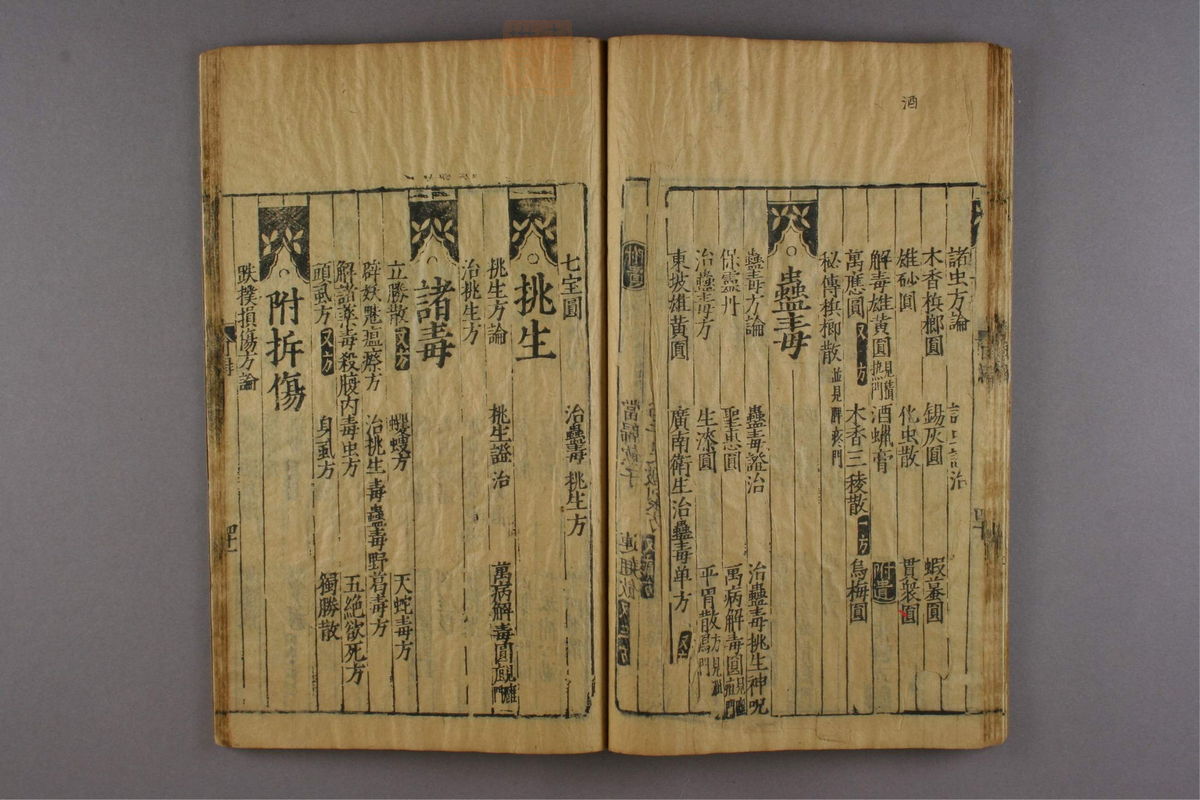 酒
諸虫方論 治
木香檳榔圓 錫灰圓 蝦蟇圓
雄砂圓 化虫散 貫衆圓
解毒雄黄圓見積热門 酒蝋膏 附遺
萬應圓 又一方 木香三稜散 一方 烏梅圓
秘傳檳榔散並見脾疼門
蠱毒
蠱毒方論 蠱毒證治 治蠱毒挑生神呪
保靈丹 聖惠圓 萬病解毒圓
治蠱毒方 生漆圓 平胃散
東坡雄黄圓 廣南衛生治蠱毒单方
七宝圓 治蠱毒挑生方
挑生
挑生方論 挑生證治 萬病解毒圓
治挑生方
諸毒
立勝散 又方 蠼螋方 天蛇毒方
辟妖魅瘟瘵方 治挑生毒蠱毒野葛毒方
解諸藥毒殺腹内毒虫方 五絶欲死方
頭虱方 又方 身虱方 獨勝散
附折傷
跌撲損傷方論